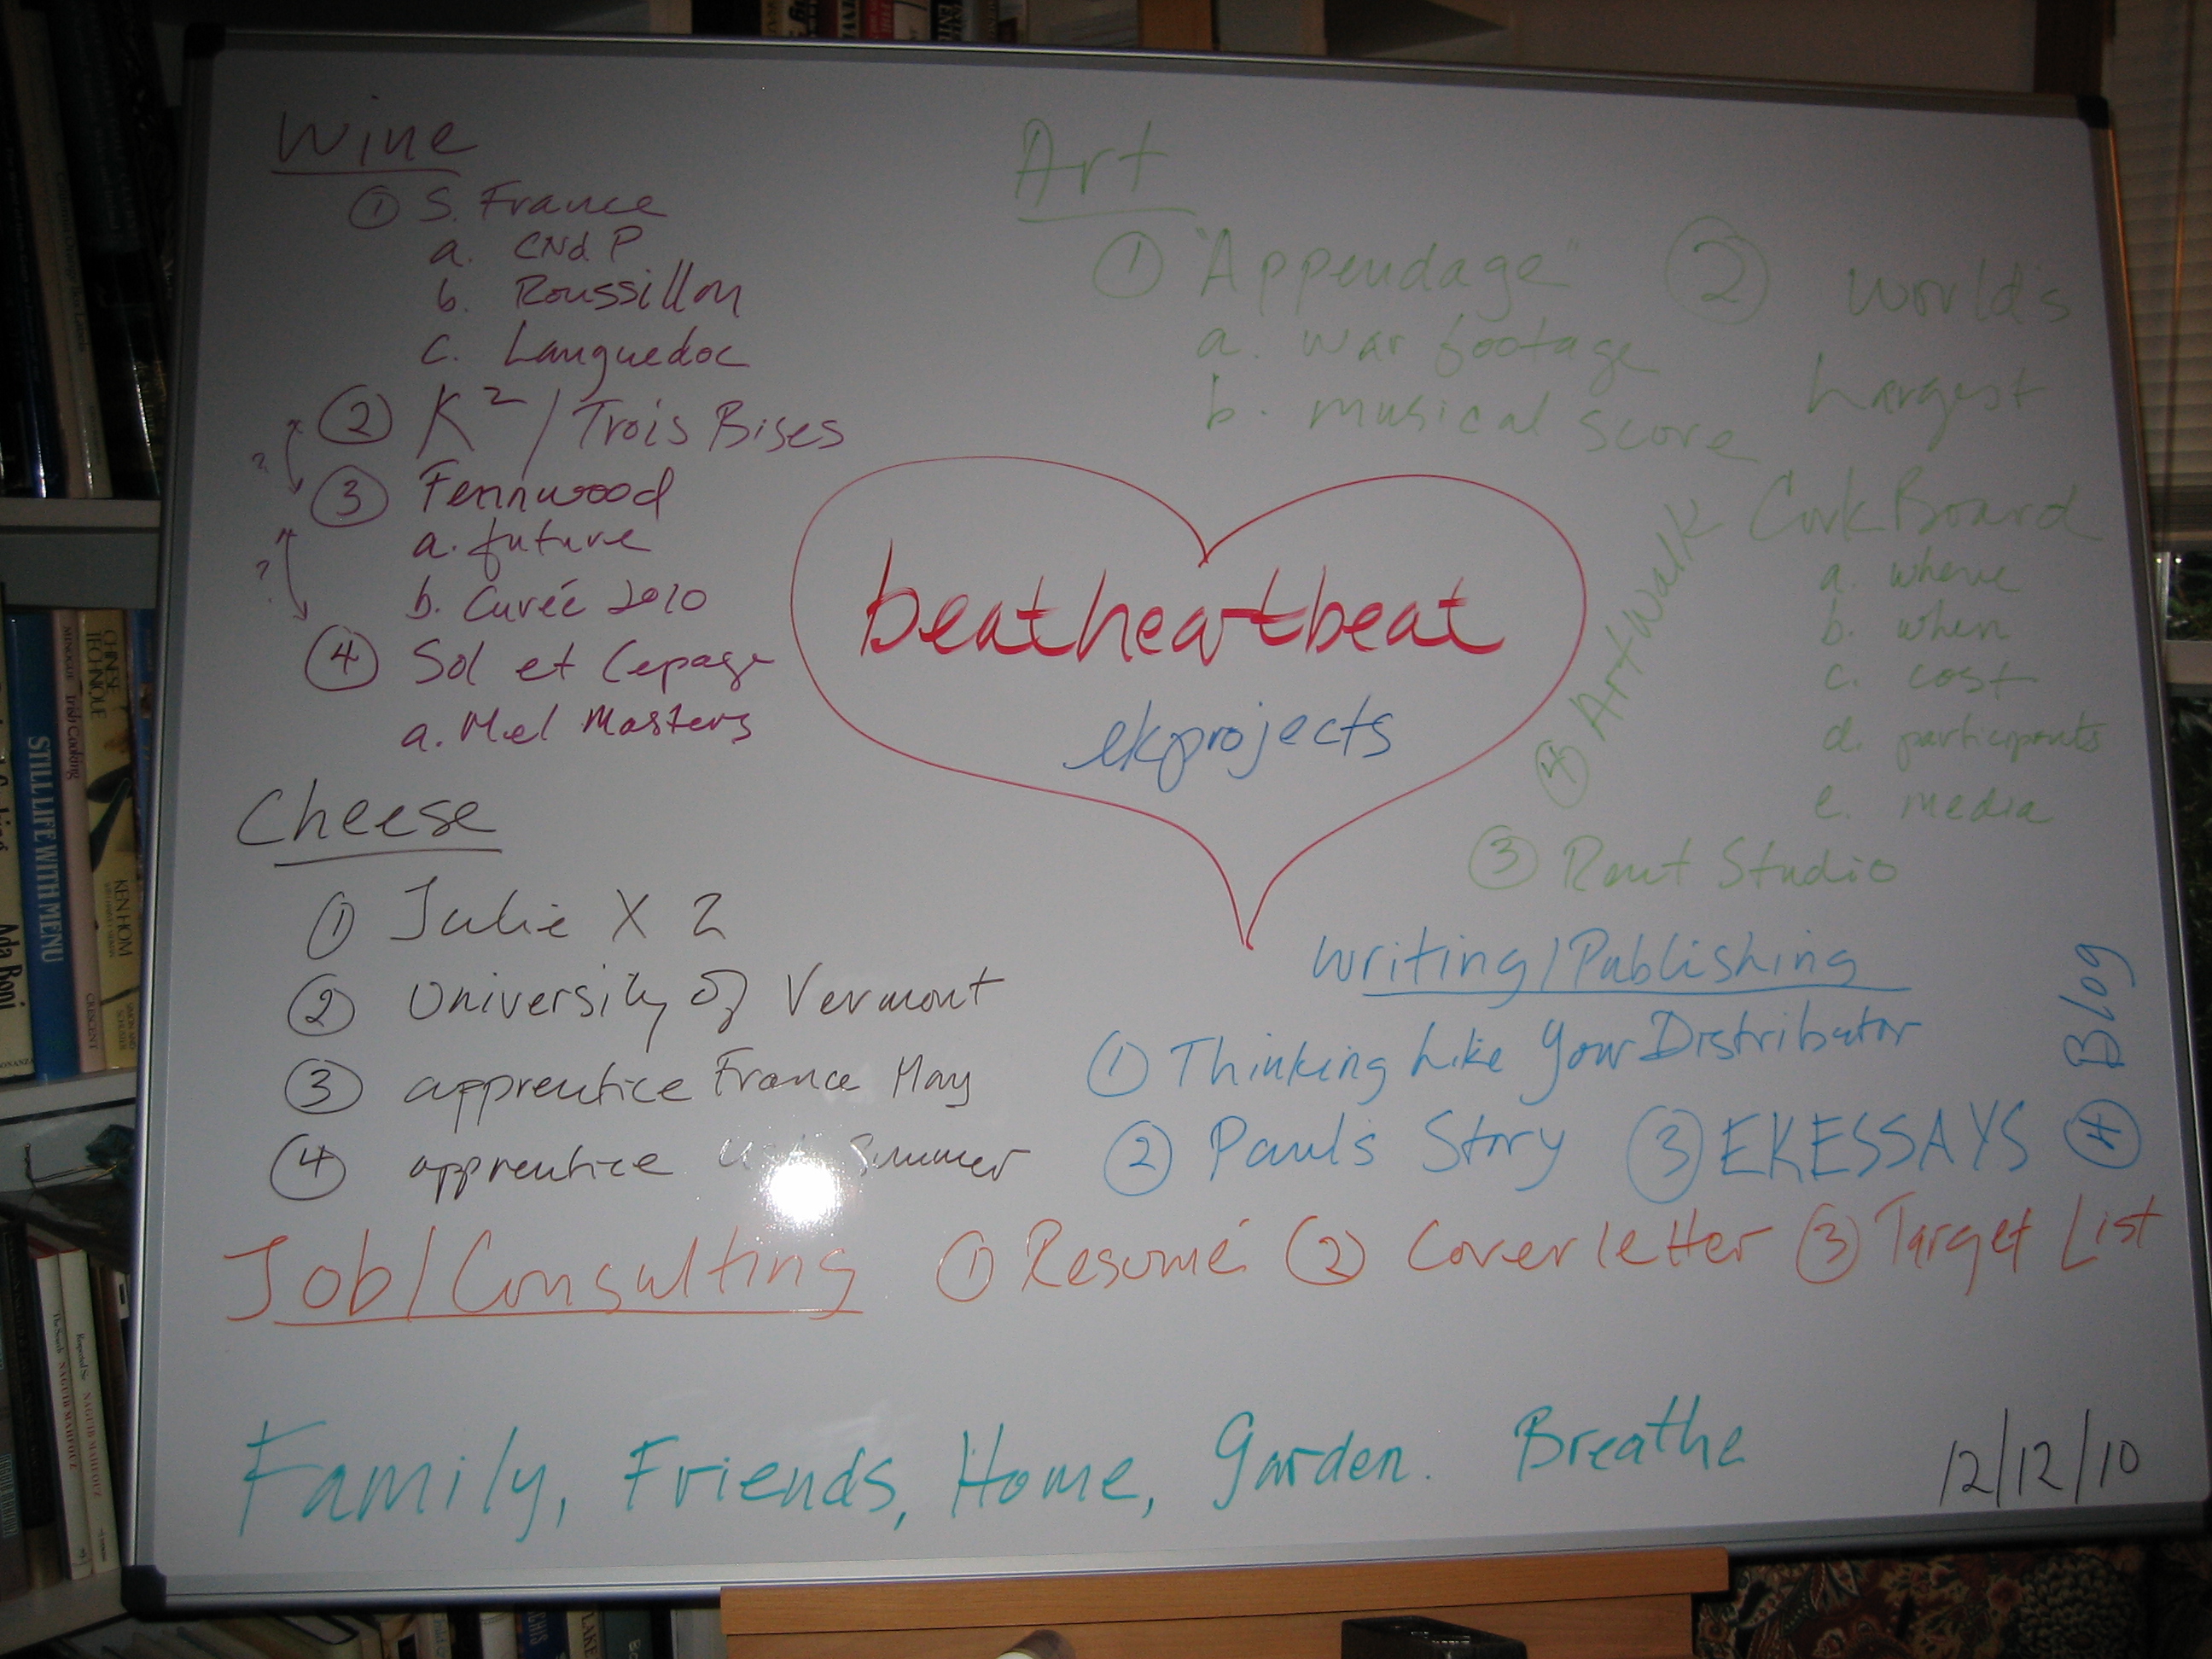 Wine
① S. France
a. CNdP
b. Roussillon
c. Languedoc
② K² / Trois Bises
?
③ Fennwood
a. future
?
b. Cuvéé 2010
④ Sol et Cepage
a. Mel Masters
Art
① "Appendage"
a. war footage
b. musical score
② World's
Largest
Cork Board
a. where
b. when
c. cost
d. participants
e. media
④ Art Walk
③ Rent Studio
beatheartbeat
ekprojects
Cheese
① Julie X 2
② University of Vermont
③ apprentice France May
④ apprentice Summer
Writing/Publishing
① Thinking Like Your Distributor
② Paul's Story ③ EKESSAYS ④ Blog
Job/Consulting ① Resumé ② Cover letter ③ Target List
Family, Friends, Home, Garden. Breathe
12/12/10
CHINESE TECHNIQUE
KEN HOM
Irish Cooking
CRESCENT
STILL LIFE WITH MENU
Ada Boni
NAGUIB MAHFOUZ
NAGUIB MAHFOUZ